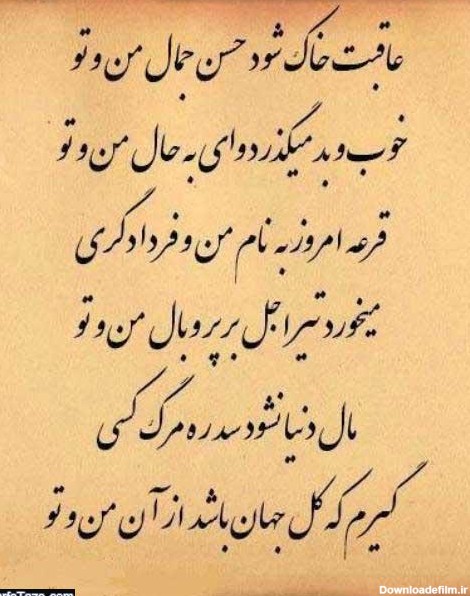 عاقبت خاک شود حسن جمال من و تو
خوب و بد میگذرد وای به حال من و تو
قرعه امروز به نام من و فردا دگری
میخورد تیر اجل بر پر و بال من و تو
مال دنیا نشود سد ره مرگ کسی
گیرم که کل جهان باشد از آن من و تو
Downloadefilm.ir